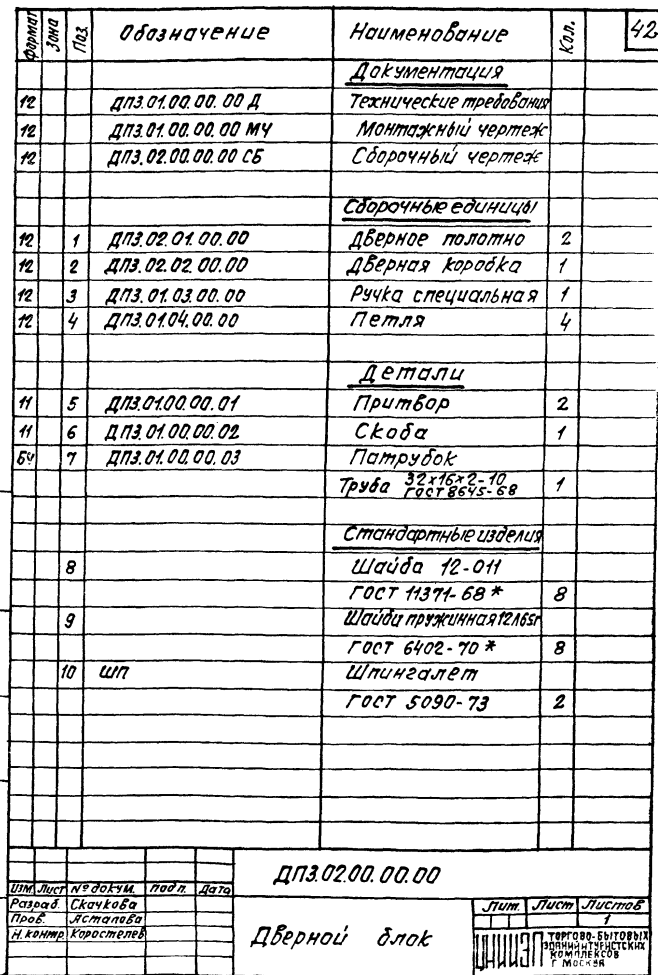 42
формат Зона Поз. Обозначение Наименование Кол.
Документация
12 ДПЗ.01.00.00.00 Д Технические требования
12 ДПЗ.01.00.00.00 МЧ Монтажный чертеж
12 ДПЗ.02.00.00.00 СБ Сборочный чертеж
Сборочные единицы
12 1 ДПЗ.02.01.00.00 Дверное полотно 2
12 2 ДПЗ.02.02.00.00 Дверная коробка 1
12 3 ДПЗ.01.03.00.00 Ручка специальная 1
12 4 ДПЗ.01.04.00.00 Петля 4
Детали
11 5 ДПЗ.01.00.00.01 Притвор 2
11 6 ДПЗ.01.00.00.02 Скоба 1
БЧ 7 ДПЗ.01.00.00.03 Патрубок
Труба 32х16х2-10 ГОСТ 8645-68 1
Стандартные изделия
8 Шайба 12-011
ГОСТ 11371-68 * 8
9 Шайба пружинная 12Л65Г
ГОСТ 6402-70 * 8
10 ШП Шпингалет
ГОСТ 5090-73 2
ДПЗ.02.00.00.00
Изм. Лист № докум. Подп. Дата
Разраб. Скачкова
Пров. Астапова
Н.контр. Коростелев
Дверной блок
Лит. Лист Листов
1
ЦНИИЭП ТОРГОВО-БЫТОВЫХ
ЗДАНИЙ И ТУРИСТСКИХ
КОМПЛЕКСОВ
Г МОСКВА